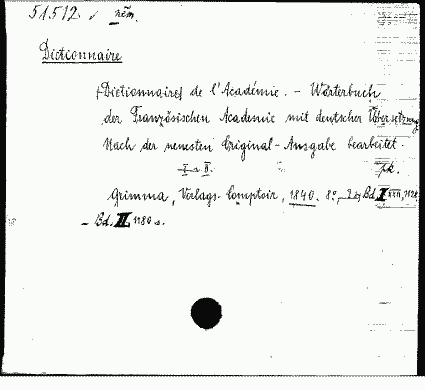 51.512 něm.
Dictionnaire
Dictionnaires de l'Académie. - Wörterbuch
der Französischen Academie mit deutscher Übersetzung
Nach der neusten Original-Ausgabe bearbeitet.
I - II. pk.
Grimma, Verlags-Comptoir, 1840. 8°, Bd. I XXII, 1128
- Bd. II, 1180 s.